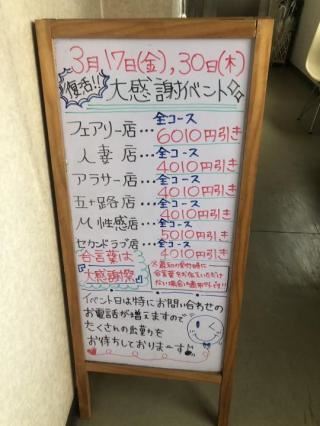 3月17日(金),30日(木)
復活!! 大感謝イベント
フェアリー店…全コース 6010円引き
人妻店…全コース 4010円引き
アラサー店…全コース 4010円引き
五十路店…全コース 4010円引き
M性感店…全コース 5010円引き
セカンドラブ店…全コース 4010円引き
合言葉は
『大感謝祭』
※最初の受付時に
合言葉をお伝えいただけ
ない場合は適用外です!!
イベント日は特にお問い合わせの
お電話が増えますので
たくさんの出勤を
お待ちしておりまーす